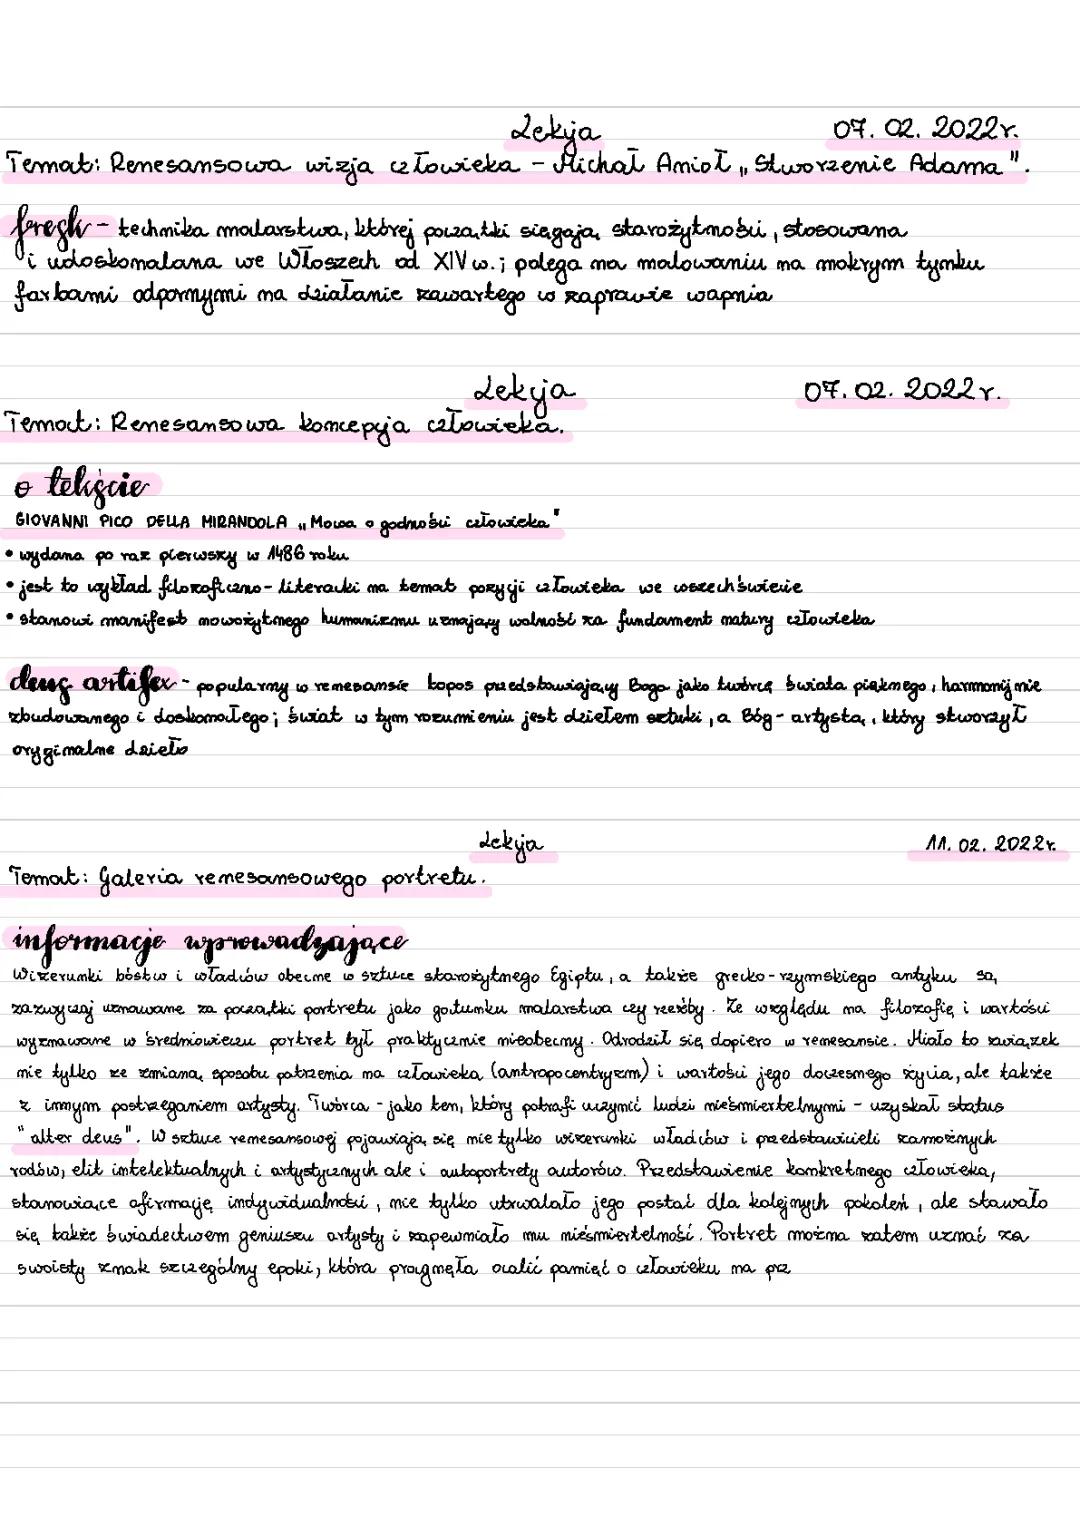 Lekcja 07. 02. 2022r.
Temat: Renesansowa wizja człowieka - Michał Anioł „Stworzenie Adama".
fresk - technika malarstwa, której początki sięgają starożytności, stosowana
i udoskonalana we Włoszech od XIV w.; polega na malowaniu na mokrym tynku
farbami odpornymi na działanie zawartego w zaprawie wapnia
Lekcja 07. 02. 2022r.
Temat: Renesansowa koncepcja człowieka.
o tekście
GIOVANNI PICO DELLA MIRANDOLA „Mowa o godności człowieka"
• wydana po raz pierwszy w 1486 roku
• jest to wykład filozoficzno-literacki na temat pozycji człowieka we wszechświecie
• stanowi manifest nowożytnego humanizmu uznający wolność za fundament natury człowieka
deus artifex - popularny w renesansie topos przedstawiający Boga jako twórcę świata pięknego, harmonijnie
zbudowanego i doskonałego; świat w tym rozumieniu jest dziełem sztuki, a Bóg - artystą, który stworzył
oryginalne dzieło
Lekcja 11. 02. 2022r.
Temat: Galeria renesansowego portretu.
informacje wprowadzające
Wizerunki bóstw i władców obecne w sztuce starożytnego Egiptu, a także grecko-rzymskiego antyku są
zazwyczaj uznawane za początki portretu jako gatunku malarstwa czy rzeźby. Ze względu na filozofię i wartości
wyznawane w średniowieczu portret był praktycznie nieobecny. Odrodził się dopiero w renesansie. Miało to związek
nie tylko ze zmianą sposobu patrzenia na człowieka (antropocentryzm) i wartości jego doczesnego życia, ale także
z innym postrzeganiem artysty. Twórca - jako ten, który potrafi uczynić ludzi nieśmiertelnymi - uzyskał status
"alter deus". W sztuce renesansowej pojawiają się nie tylko wizerunki władców i przedstawicieli zamożnych
rodów, elit intelektualnych i artystycznych ale i autoportrety autorów. Przedstawienie konkretnego człowieka,
stanowiące afirmację indywidualności, nie tylko utrwalało jego postać dla kolejnych pokoleń, ale stawało
się także świadectwem geniuszu artysty i zapewniało mu nieśmiertelność. Portret można zatem uznać za
swoisty znak szczególny epoki, która pragnęła ocalić pamięć o człowieku na prz